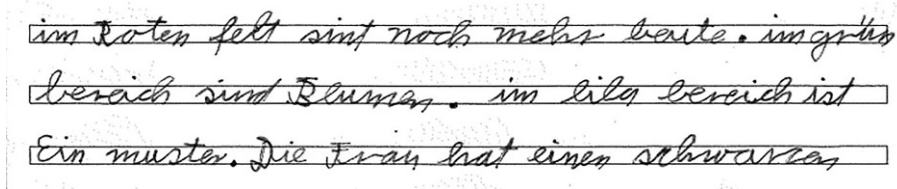 im Roten felt sint noch mehr leute. im grün
bereich sind Blumen. im lila bereich ist
Ein muster. Die Frau hat einen schwarzen